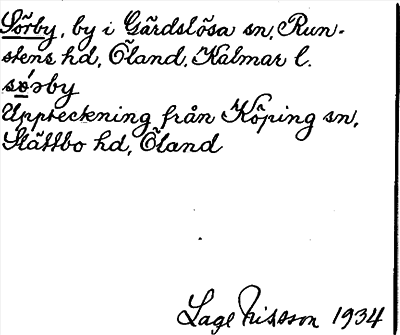 Sörby, by i Gärdslösa sn, Run-
stens hd, Öland, Kalmar l.
sǿrby
Uppteckning från Köping sn,
Slättbo hd, Öland
Lage Nilsson 1934